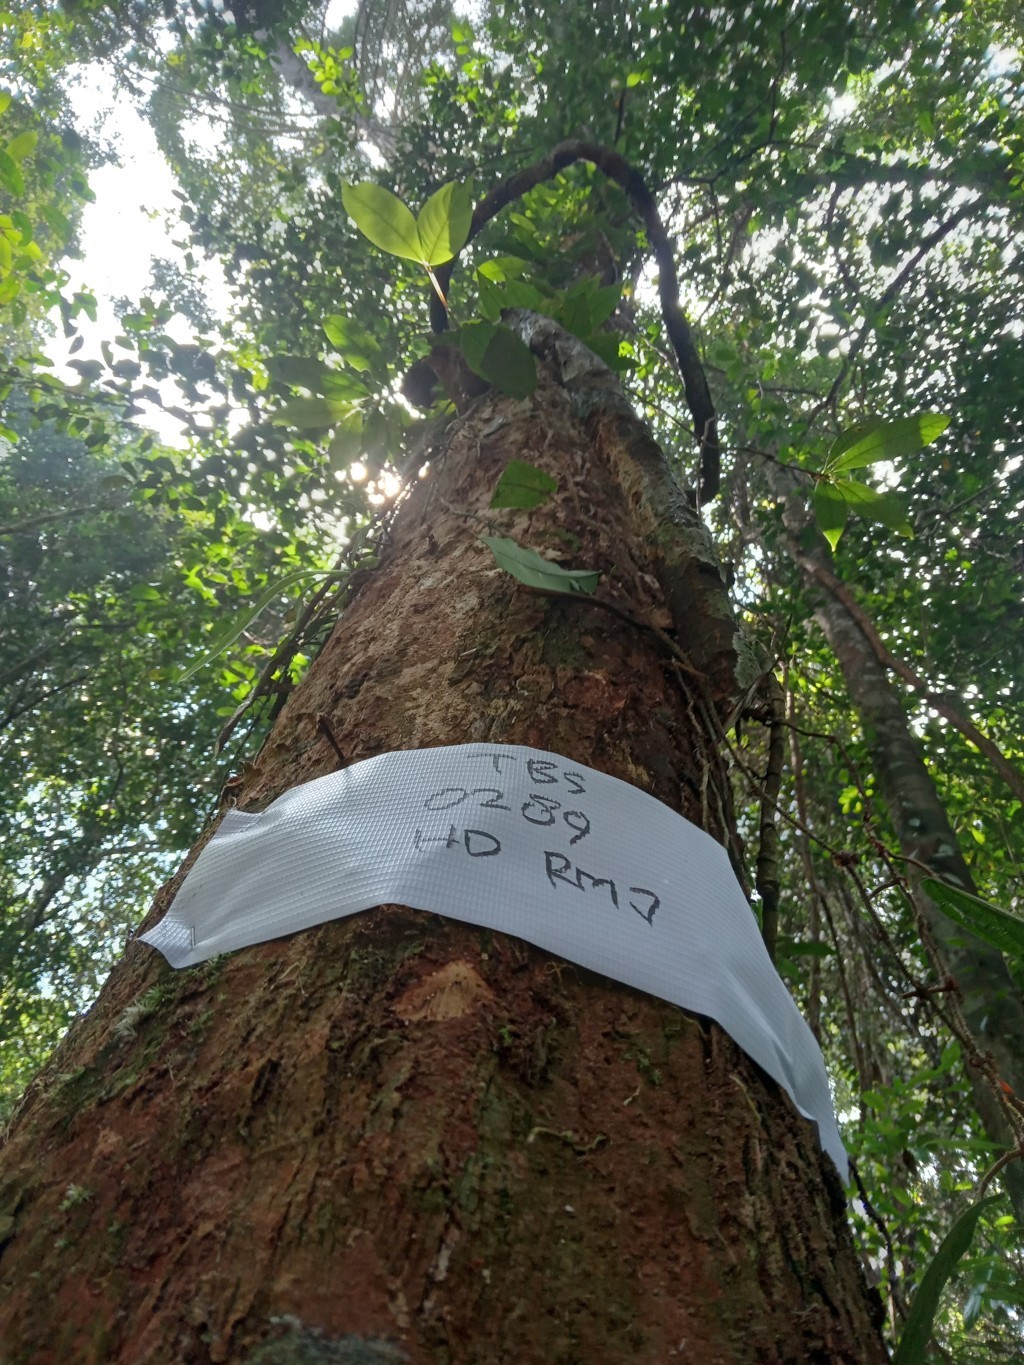 TBS
0289
HD RMJ